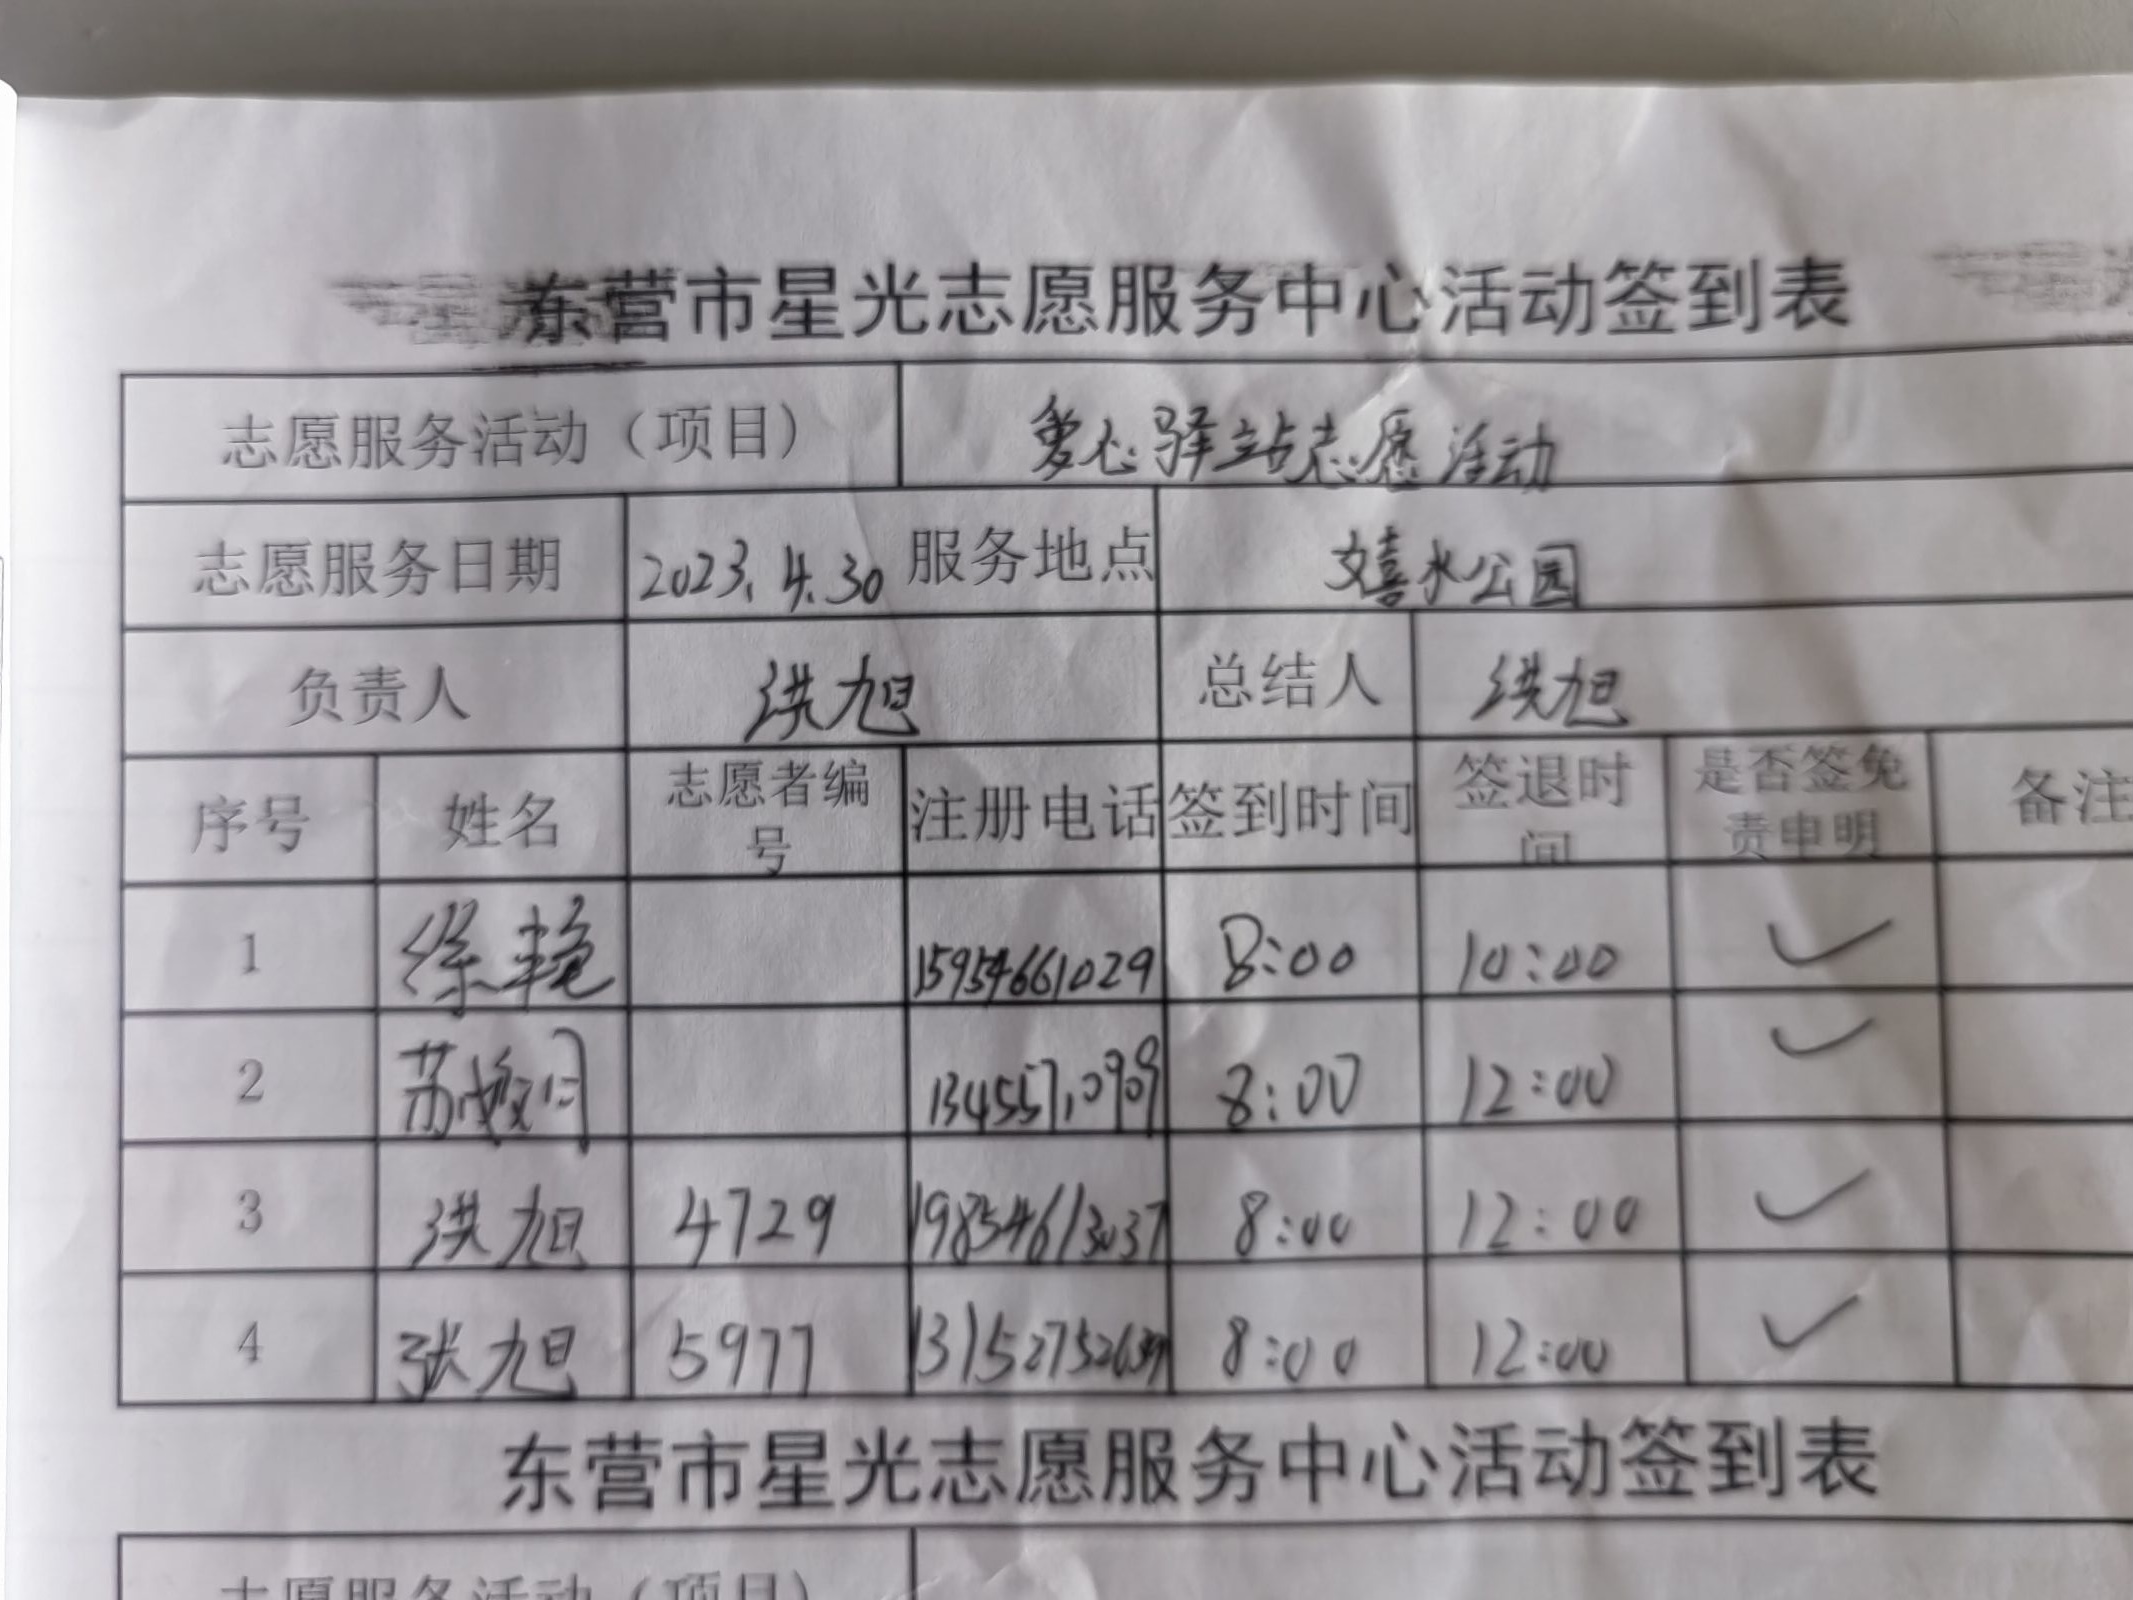 东营市星光志愿服务中心活动签到表
志愿服务活动（项目） 爱心驿站志愿活动
志愿服务日期 2023.4.30 服务地点 嬉水公园
负责人 洪旭 总结人 洪旭
序号 姓名 志愿者编号 注册电话 签到时间 签退时间 是否签免责申明 备注
1 徐艳 15954661029 8:00 10:00 ✓
2 苏 8:00 12:00 ✓
3 洪旭 4729 19854613037 8:00 12:00 ✓
4 张旭 5977 8:00 12:00 ✓
东营市星光志愿服务中心活动签到表
志愿服务活动（项目）